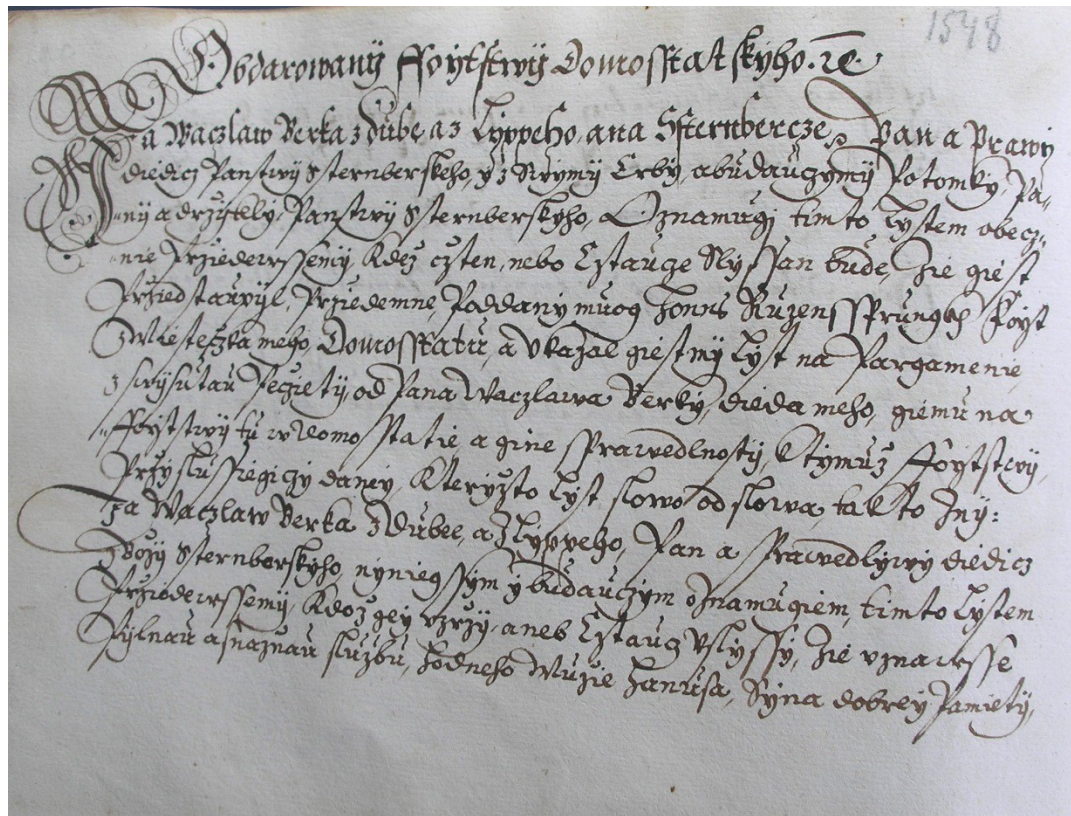 1548
Obdarowanÿ ffoÿtstwÿ Domosstatskÿho. ꝛc̄.
Ja Waczlaw Berka z dube, a z Lÿppeho, ana Ssternbercze, Pan a Prawÿ
diedicz Panstwÿ Sternberskeho, ÿ z Swÿmÿ Erbÿ, abudauczÿmÿ Potomkÿ, Pa„
„nÿ a drzÿtelÿ, Panstwÿ Sternberskÿho, Oznamugi timto Lÿstem obecz„
„nie Prziedewssemÿ, kdez czten, nebo Cztauze Slÿssan bude, Zie giest
Prziedstaupÿl, Przedemne Poddanÿ muog Hanns Ruzenssprungkh Foÿt
z Miesteczka meho, Domosstatu, a Ukazal giest mÿ Lÿst na Pargamenie,
z wÿsutau Peczietÿ, od Pana Waczlawa Berkÿ, dieda meho, giemu na
„ffoÿtstwÿ tu w Domosstatie, a gine Sprawedlnostÿ, K tÿmuz ffoÿtstwÿ,
Przÿslussiegiczÿ danÿ, Kterÿzto Lÿst slowo od slowa, takto Znÿ:
Ja Waczlaw Berka z Dubee, a z Lÿppeho, Pan a Sprawedlÿwÿ diedicz
Zbozÿ Sternberskÿho, nÿniegssÿm ÿ budauczÿm oznamugiem, timto Lÿstem
Przedewssemÿ, Kdoz geÿ uzrzÿ, aneb Cztaucz Uslÿssÿ, Zie uznawsse
Pÿlnau a snaznau sluzbu, hodneho Muzie Hanusa, Sÿna dobreÿ Pamietÿ,